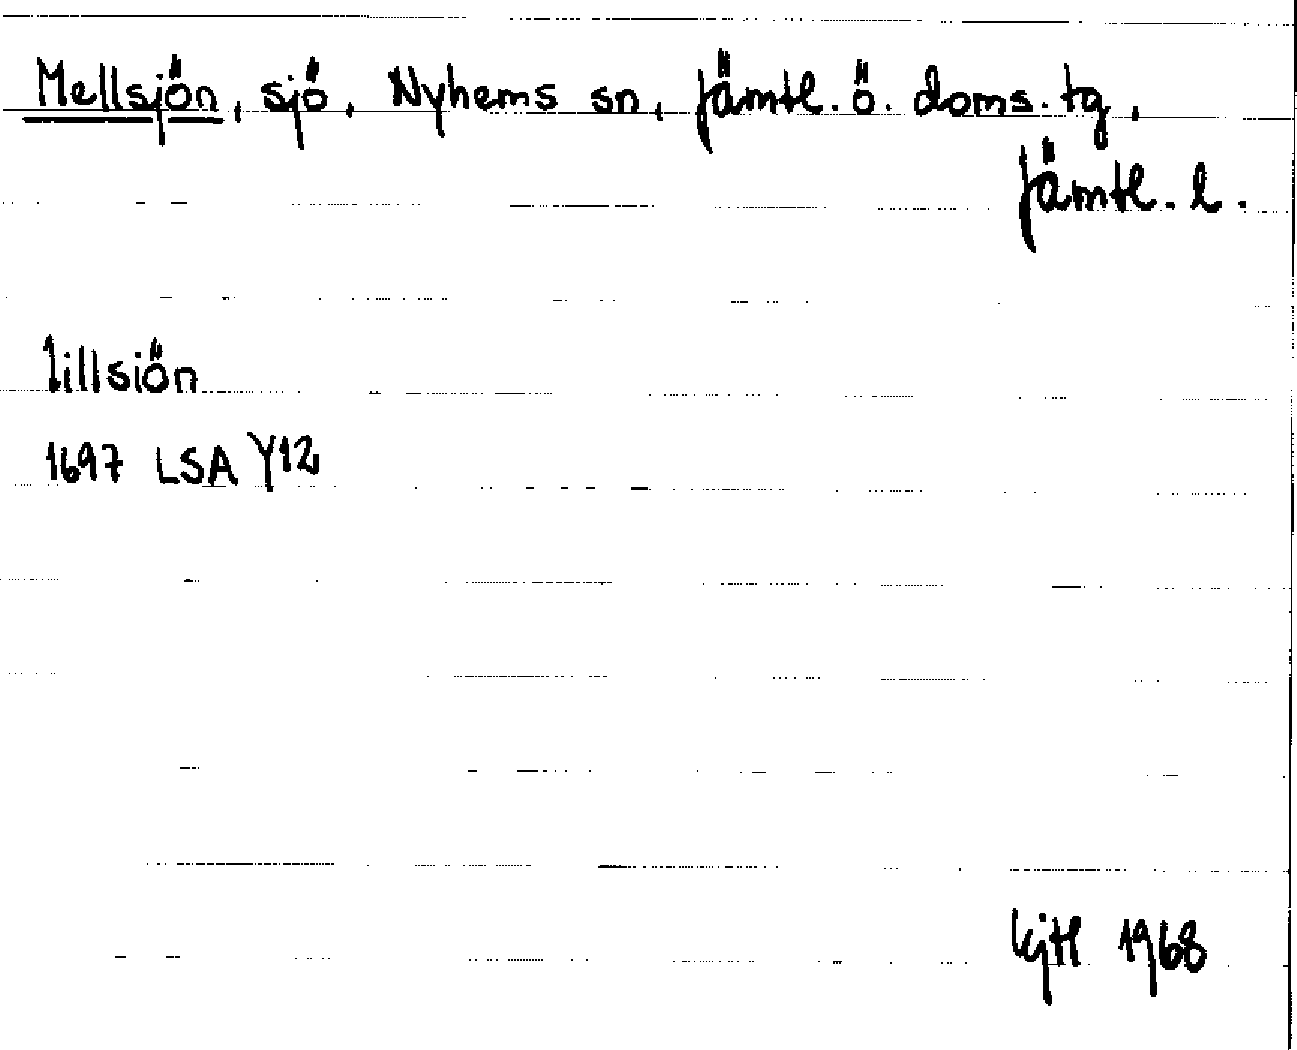 Mellsjön, sjö, Nyhems sn, Jämtl. ö. doms. tg,
Jämtl. l.
lillsiön
1697 LSA Y12
1968